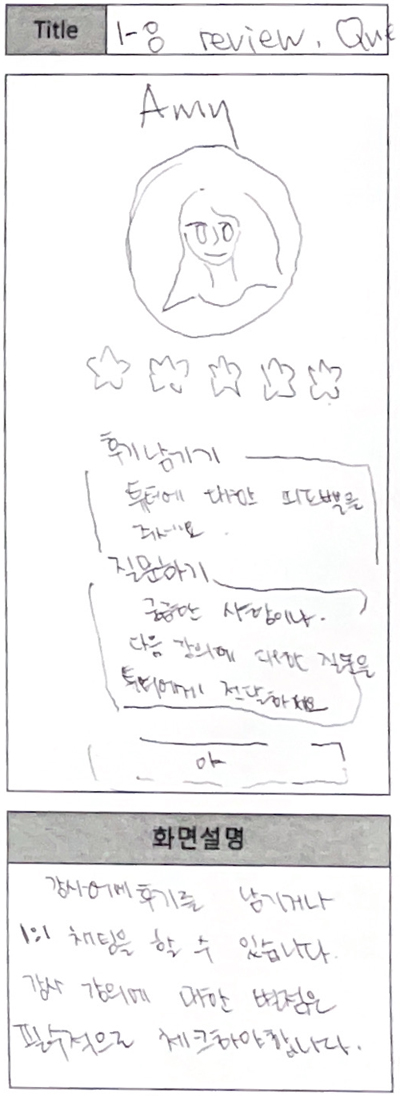 Title 1-8 review. Que
Amy
후기남기기
튜터에 대한 피드백을
주세요.
질문하기
궁금한 사항이나.
다음 강의에 대한 질문을
튜터에게 전달하세요
화면설명
강사에게 후기를 남기거나
1:1 채팅을 할 수 있습니다.
강사 강의에 대한 별점은
필수적으로 체크하야합니다.